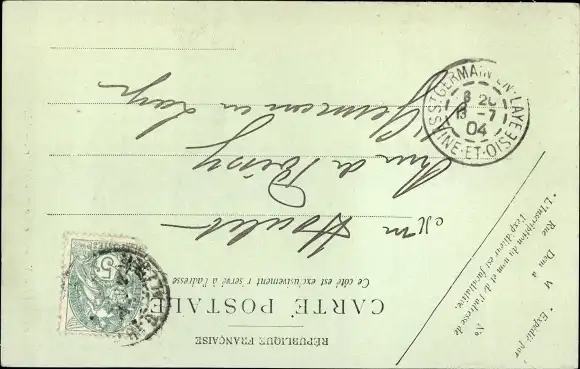 RÉPUBLIQUE FRANÇAISE
CARTE POSTALE
Ce côté est exclusivement réservé à l'adresse
Rue de Poissy
St Germain en Laye
* Expédié par
M
Dom à
Rue Nº
* L'Inscription du nom et de l'adresse de
l'expéditeur est facultative.
ST GERMAIN-EN-LAYE
8 20
13 -7
04
SNE-ET-OISE
5